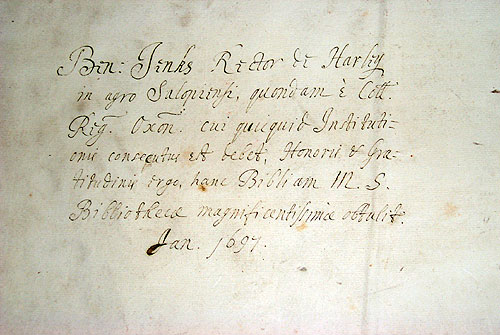 Ben: Jenks Rector de Harley
in agro Salopiensi, quondam è Coll.
Reg. Oxon. cui quicquid Instituti-
onis consecutus est debet, Honoris & Gra-
titudinis ergo, hanc Bibliam M. S.
Bibliothecæ magnificentissimæ obtulit
Jan. 1697.